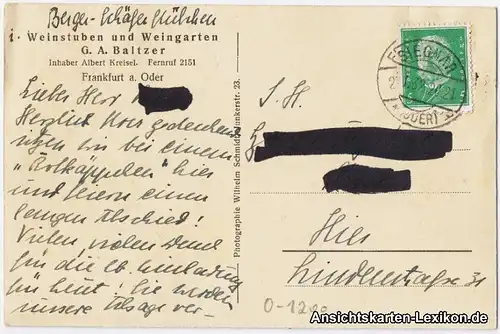 Berger-Schäferstübchen
i. Weinstuben und Weingarten
G. A. Baltzer
Inhaber Albert Kreisel. Fernruf 2151
Frankfurt a. Oder
Lieber Herr
Herzlich Ihrer gedenkend
sitzen wir bei einem
"Rotkäppchen" hier
und feiern einen
langen Abschied!
Vielen, vielen Dank
für die lb. Einladung
für heut! Sie werden
unsere Absage ver-
Photographie Wilhelm Schmidt, 23.
S. H.
Hier
Lindenstraße 31
0-1200
Ansichtskarten-Lexikon.de